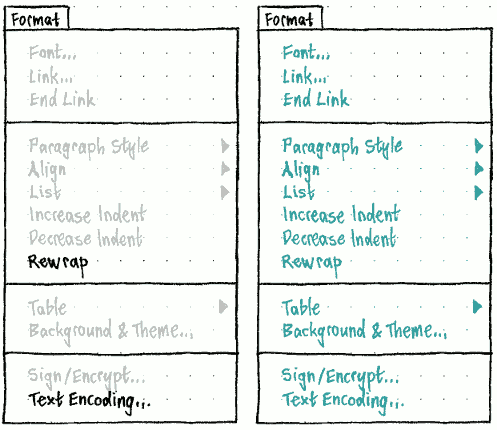 Format
Font...
Link...
End Link
Paragraph Style
Align
List
Increase Indent
Decrease Indent
Rewrap
Table
Background & Theme...
Sign/Encrypt...
Text Encoding...
Format
Font...
Link...
End Link
Paragraph Style
Align
List
Increase Indent
Decrease Indent
Rewrap
Table
Background & Theme...
Sign/Encrypt...
Text Encoding...